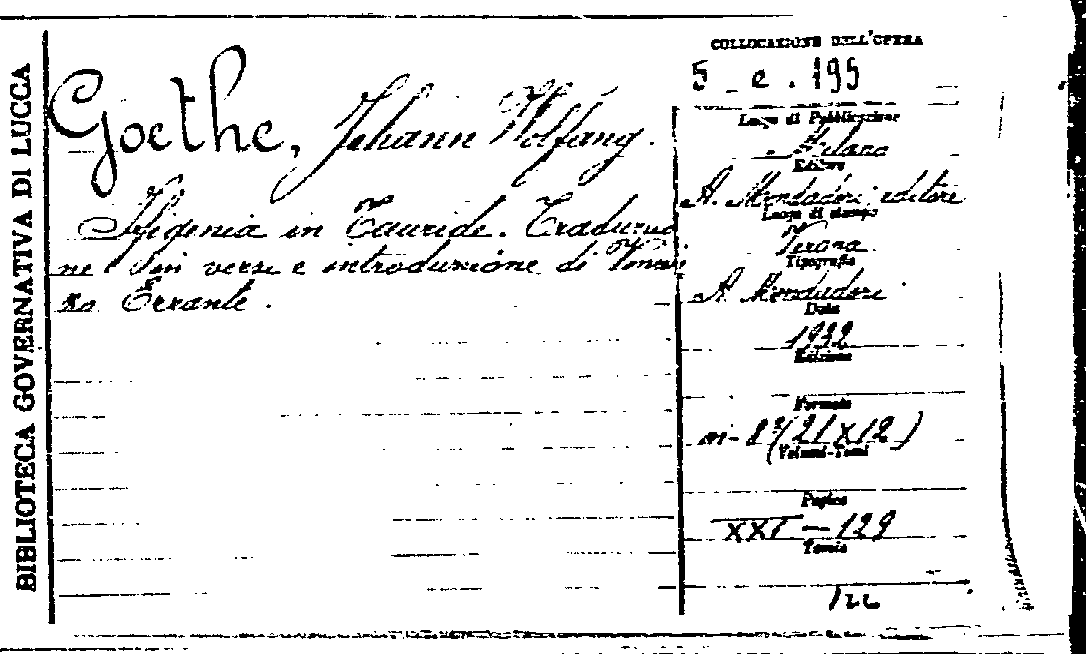 BIBLIOTECA GOVERNATIVA DI LUCCA
Goethe, Johann Wolfang.
Ifigenia in Tauride. Traduzio
ne in versi e introduzione di Vincen
zo Errante.
COLLOCAZIONE DELL'OPERA
5 e. 195
Luogo di Pubblicazione
Milano
Editore
A. Mondadori editore
Luogo di stampa
Verona
Tipografia
A. Mondadori
Data
1932
Edizione
Formato
in-8°(21x12)
Volumi-Tomi
Pagine
XXI-129
Tavole